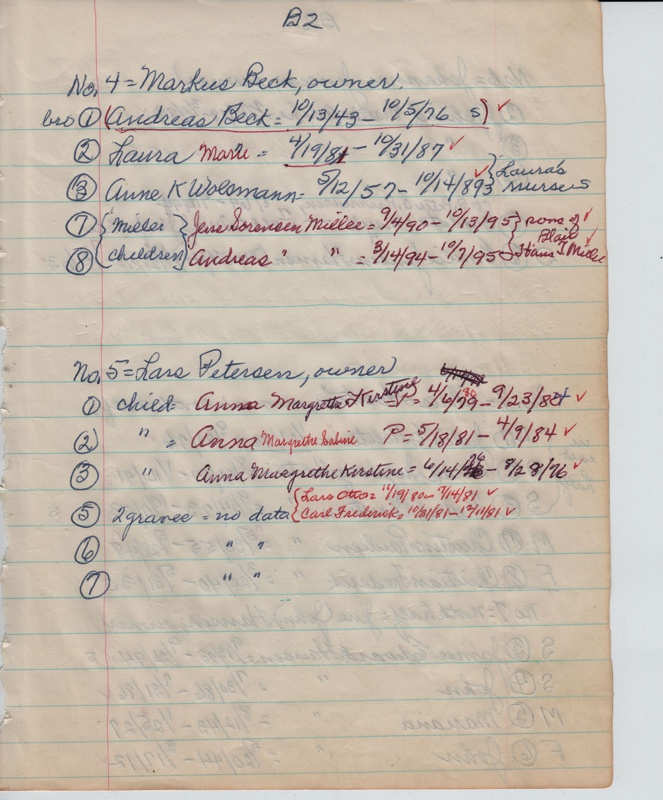 B2
No. 4 = Markus Beck, owner.
bro ① (Andreas Beck = 10/13/43 - 10/5/76 s) ✓
② Laura Marie = 4/19/81 - 10/31/87 ✓
③ Anne K Wolsmann = 5/12/57 - 10/14/893 ✓ } Laura's nurse
⑦ { Miller } Jens Sorensen Miller = 9/4/90 - 10/13/95 } sons of ✓
⑧ { children } Andreas " " = 3/14/94 - 10/7/95 } Blair Hans J. Miller ✓
No. 5 = Lars Petersen, owner
① child = Anna Margrethe Kirstine P = 4/6/79 80 - 9/23/80 ✓
② " = Anna Margrethe Sabine P = 5/18/81 - 4/9/84 ✓
③ " Anna Margrethe Kirstine = 6/14/ - 8/28/76 ✓
⑤ 2 graves = no data { Lars Otto = 11/19/80 - 7/14/81 ✓
Carl Frederick = 10/21/81 - 12/11/81 ✓
⑥ " "
⑦ " "